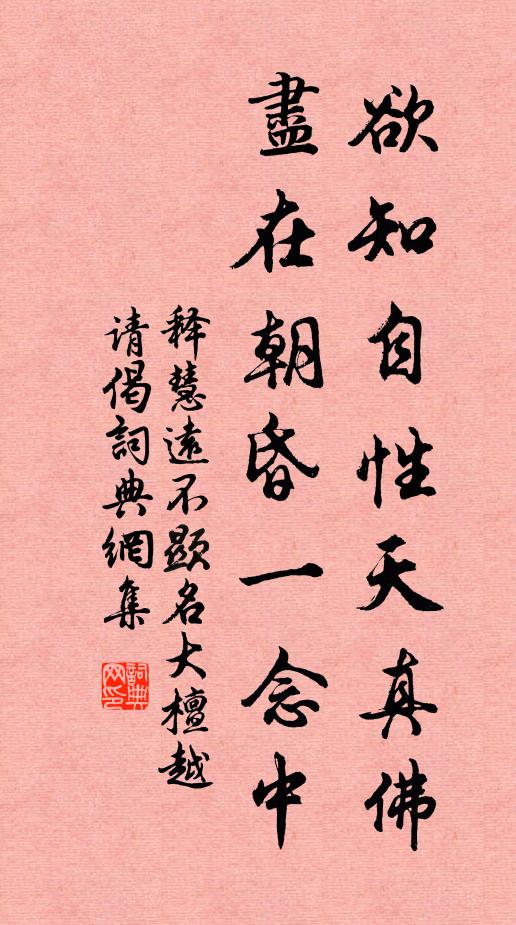 欲知自性天真佛
盡在朝昏一念中
释慧遠不顯名大檀越
请偈詞典網集
詞典网印